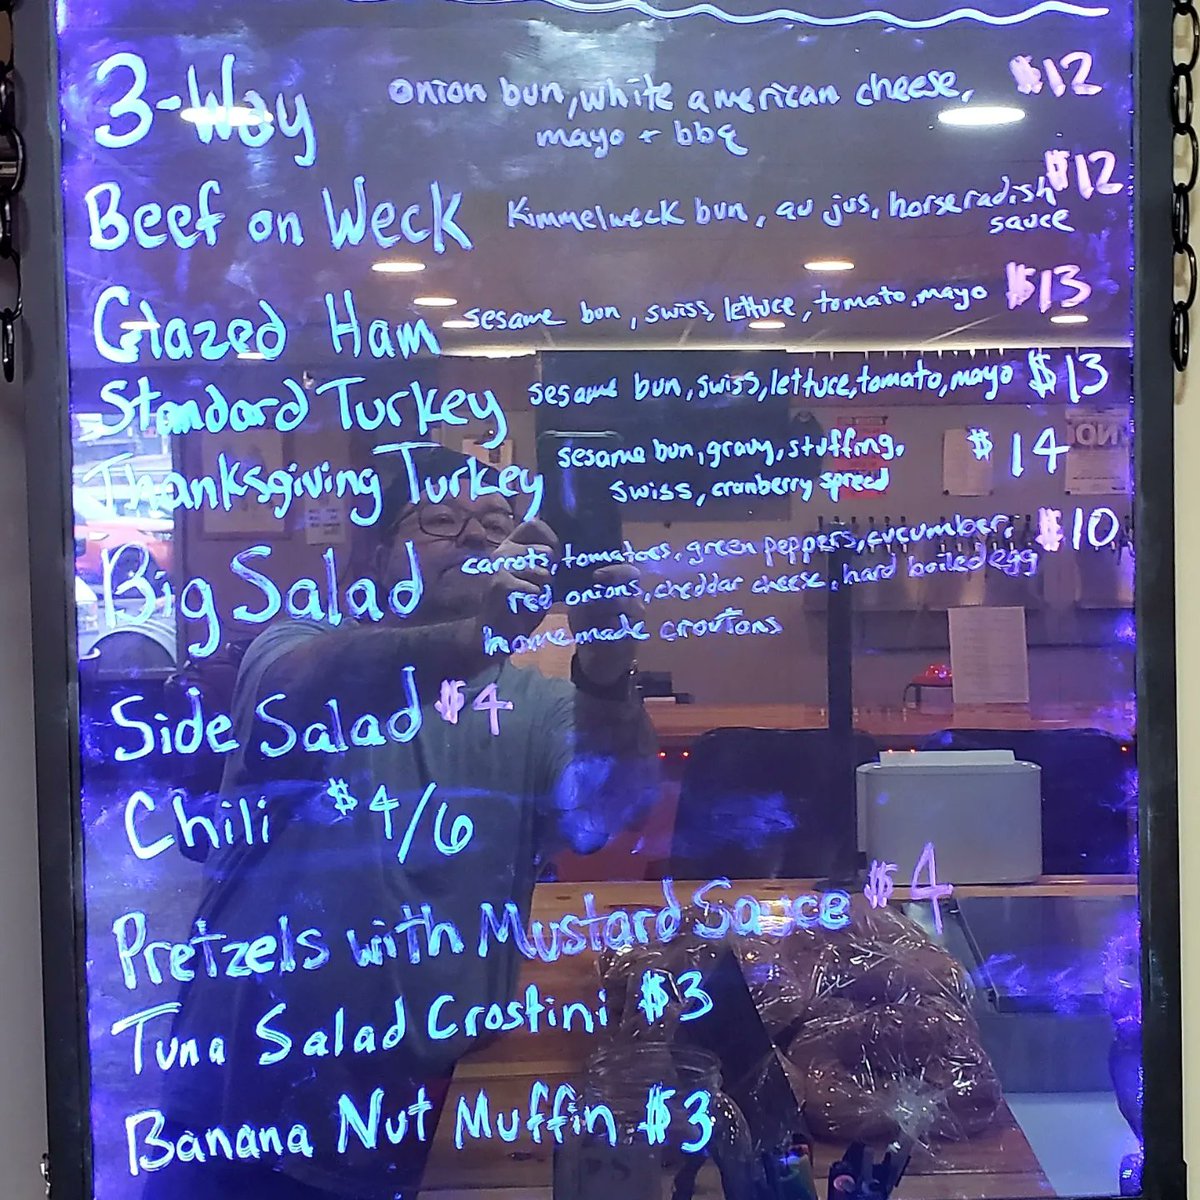 3-Way onion bun, white american cheese, $12
mayo + bbq
Beef on Weck Kimmelweck bun, au jus, horseradish $12
sauce
Glazed Ham sesame bun, swiss, lettuce, tomato, mayo $13
Standard Turkey sesame bun, swiss, lettuce, tomato, mayo $13
Thanksgiving Turkey sesame bun, gravy, stuffing, $14
swiss, cranberry spread
Big Salad carrots, tomatoes, green peppers, cucumber, $10
red onions, cheddar cheese, hard boiled egg
homemade croutons
Side Salad $4
Chili $4/6
Pretzels with Mustard Sauce $4
Tuna Salad Crostini $3
Banana Nut Muffin $3